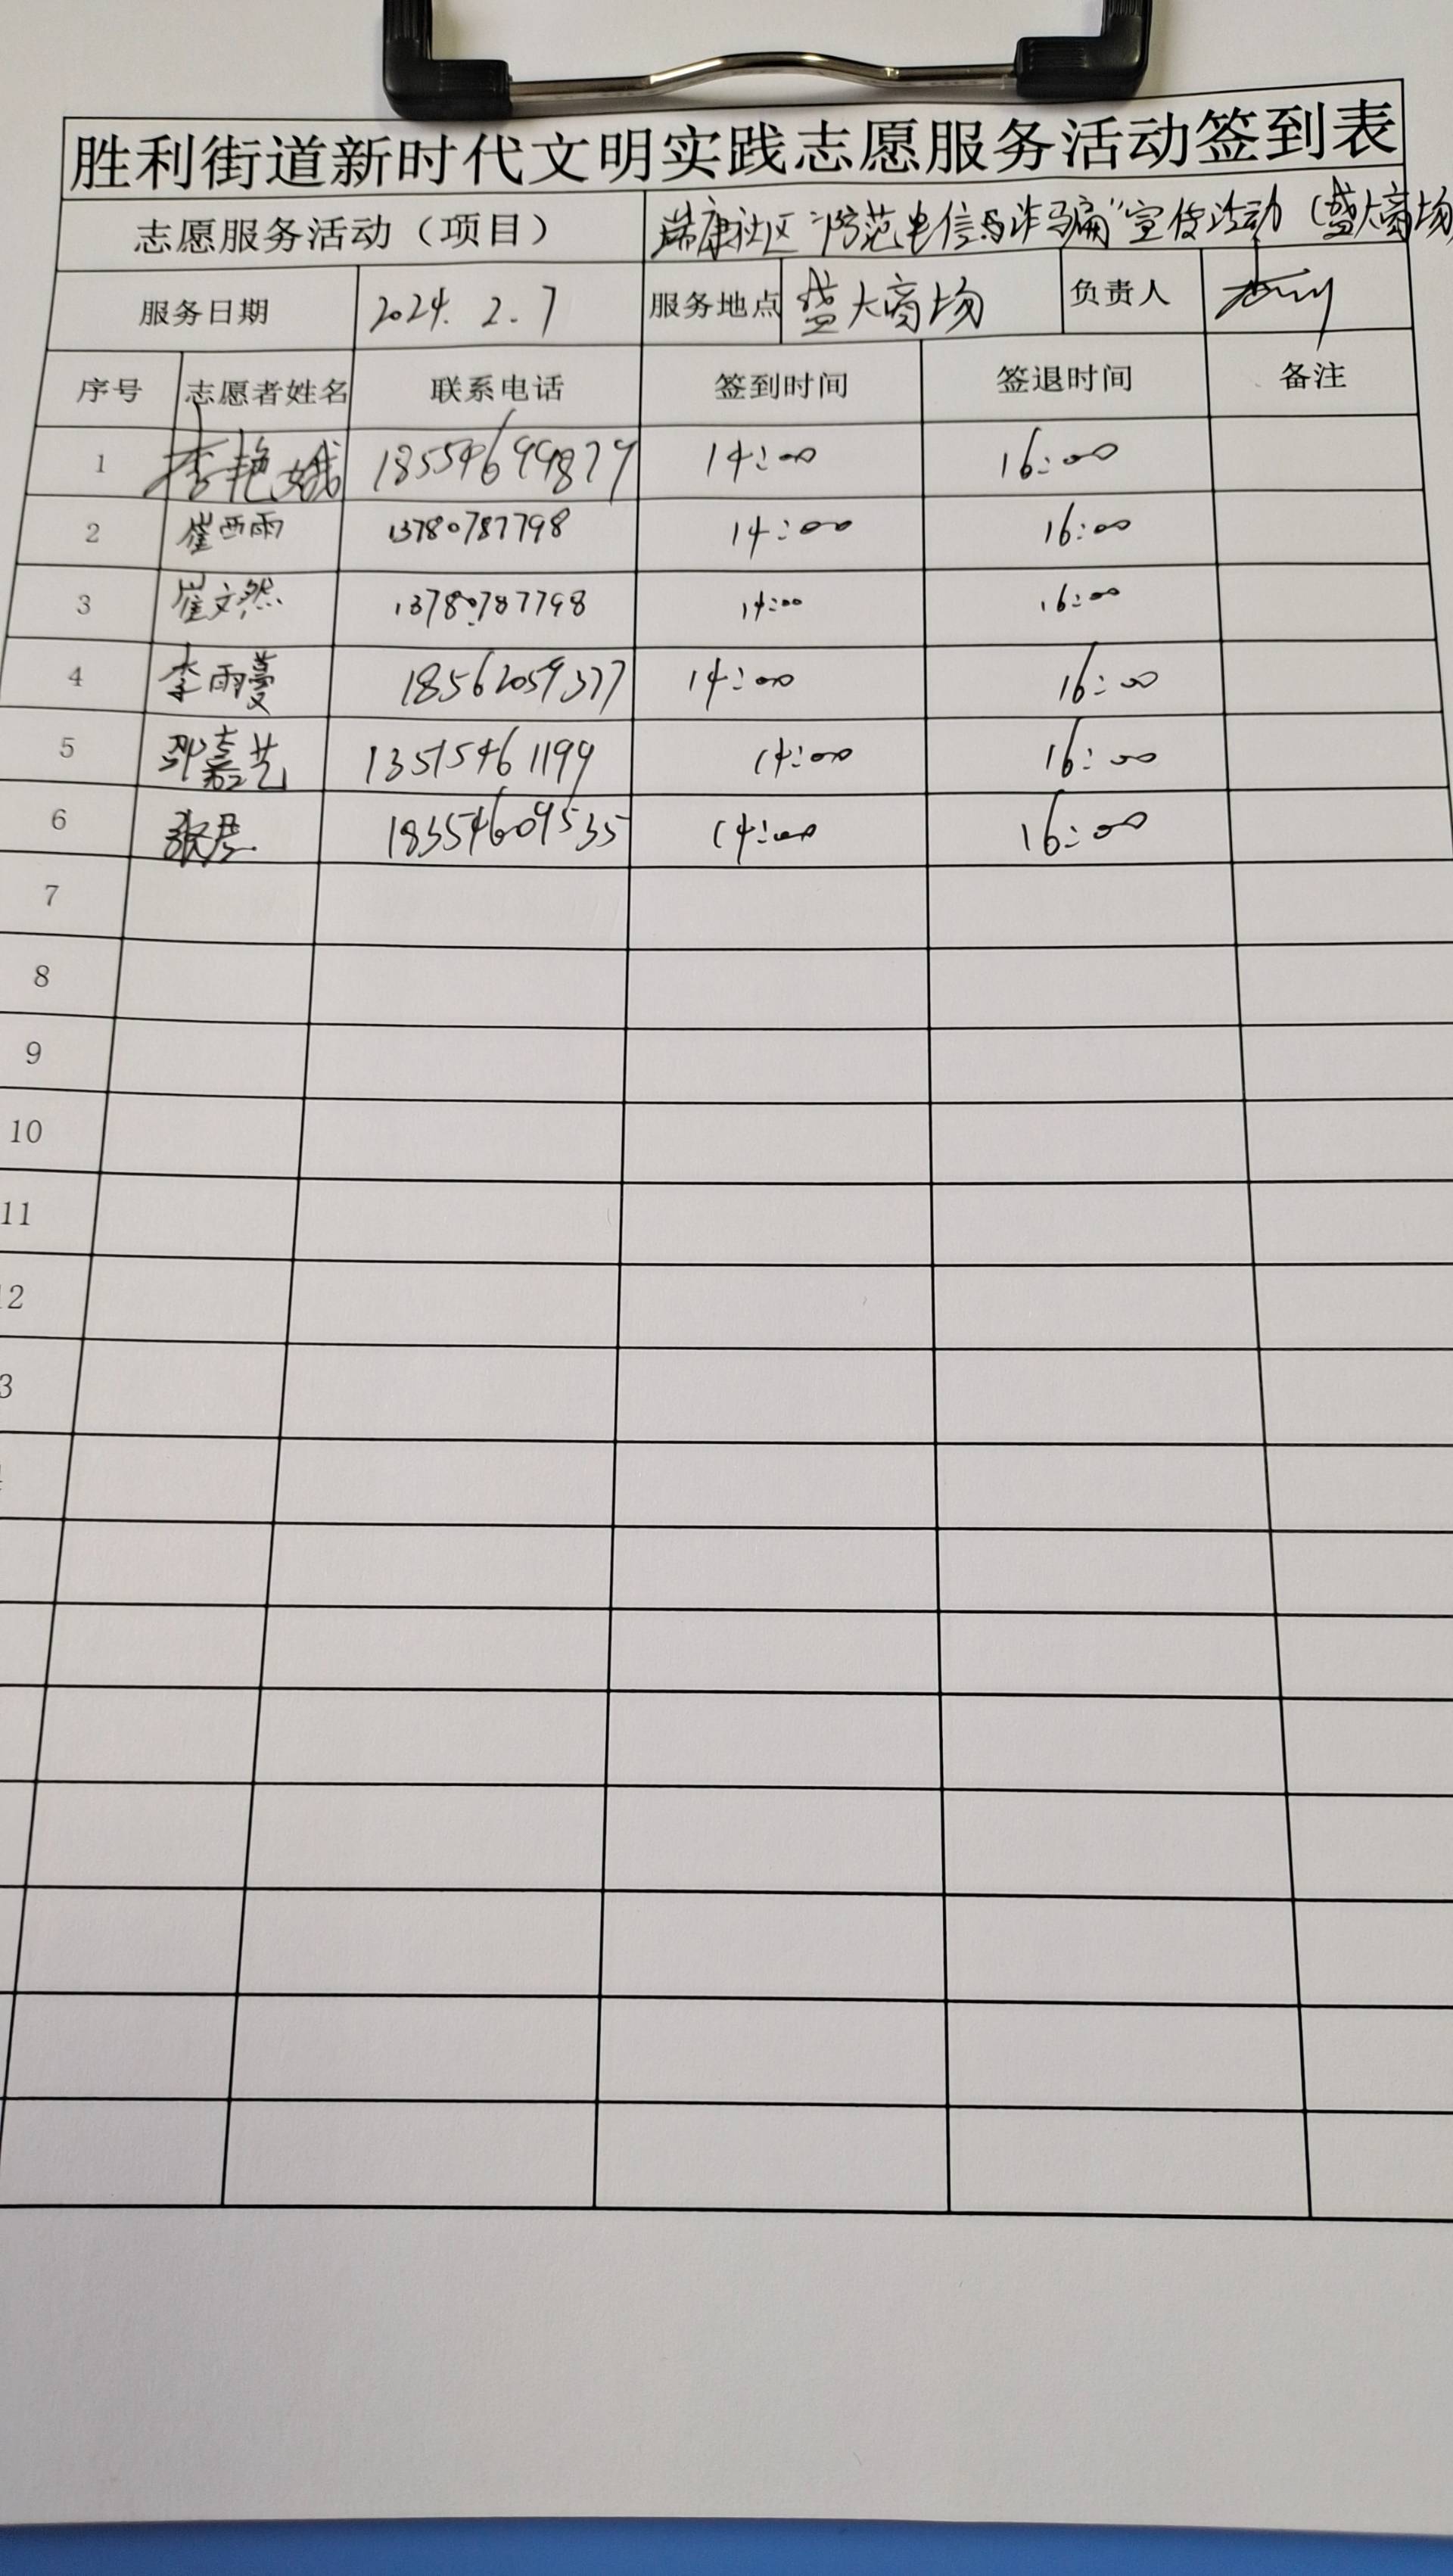 胜利街道新时代文明实践志愿服务活动签到表
志愿服务活动（项目） 瑞康社区“防范电信与诈骗”宣传活动（盛大商场）
服务日期 2024.2.7 服务地点 盛大商场 负责人
序号 志愿者姓名 联系电话 签到时间 签退时间 备注
1 李艳娥 18554699879 14:00 16:00
2 崔西雨 13780787798 14:00 16:00
3 崔文然 13780787798 14:00 16:00
4 李雨蔓 18562059377 14:00 16:00
5 邵嘉艺 13515461199 14:00 16:00
6 张 18354609535 14:00 16:00
7
8
9
10
11
12
3